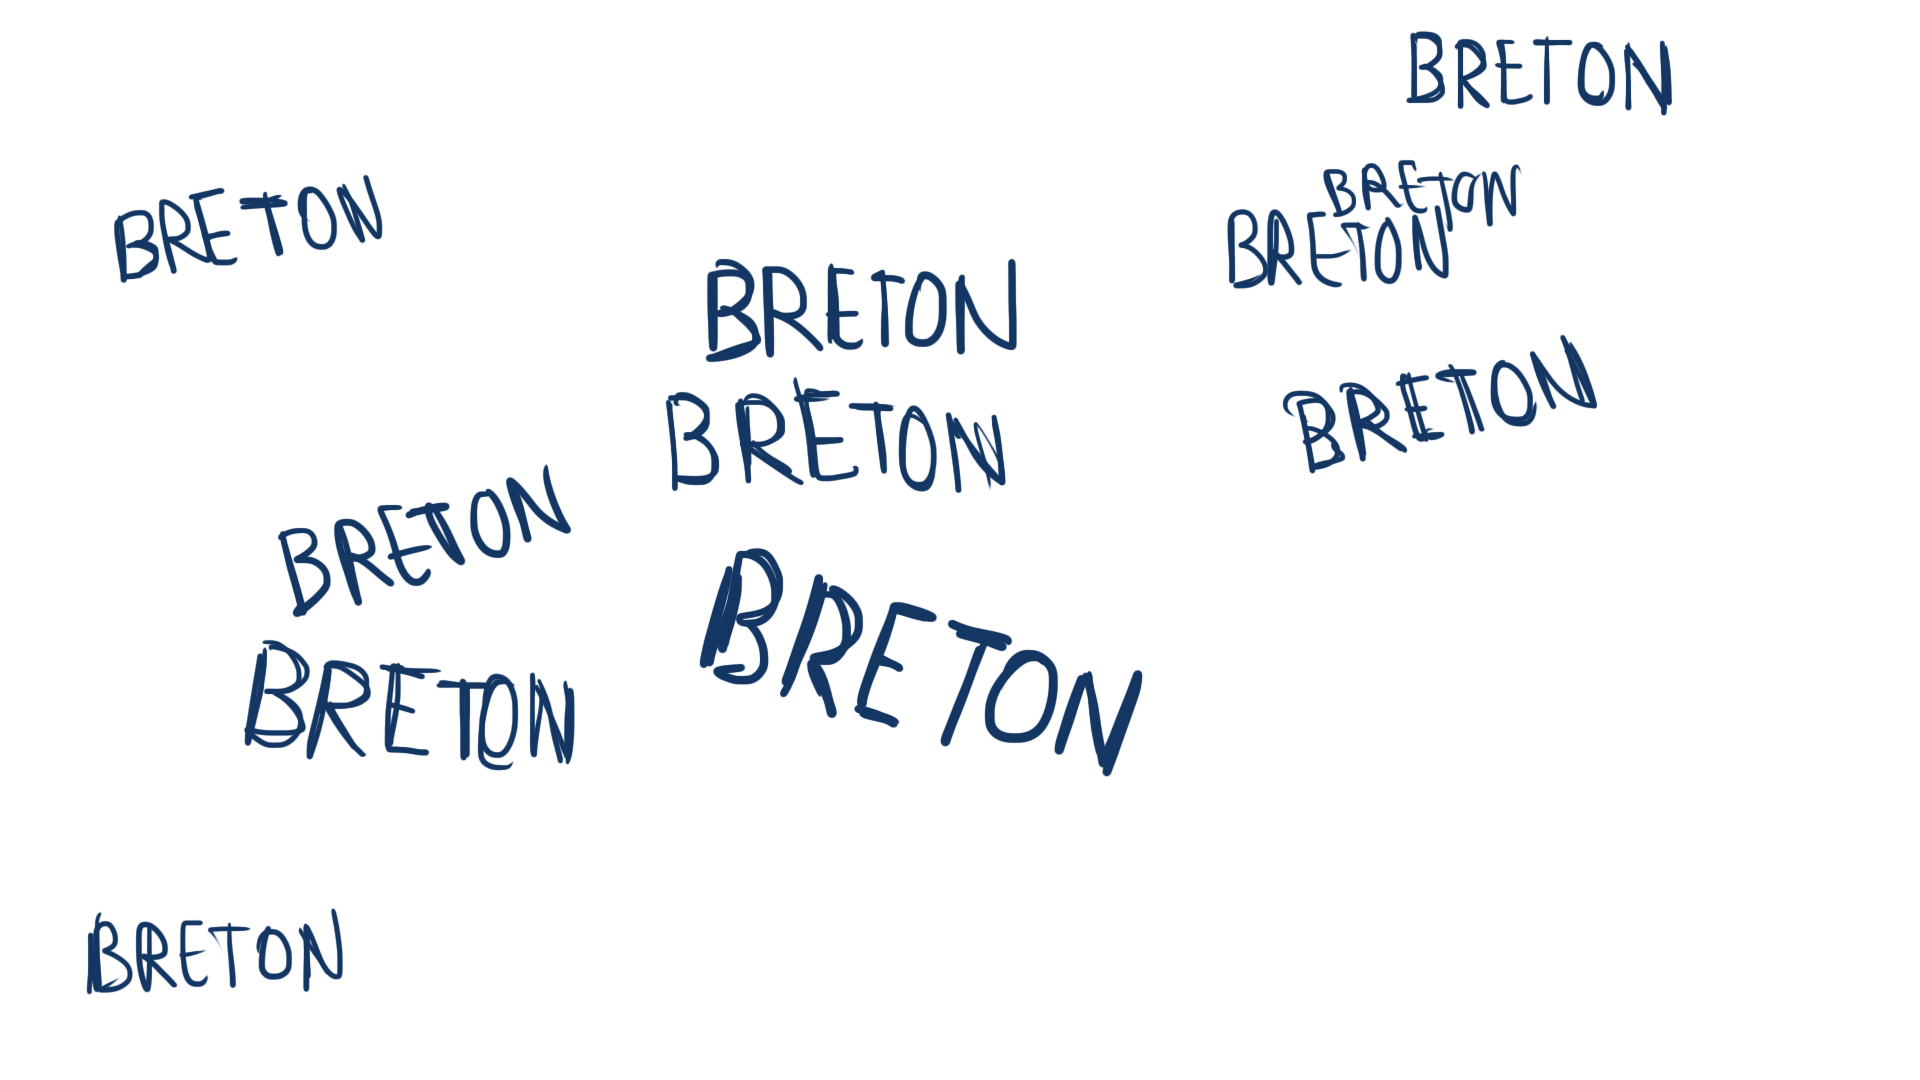 BRETON
BRETON
BRETON
BRETON
BRETON
BRETON
BRETON
BRETON
BRETON
BRETON
BRETON